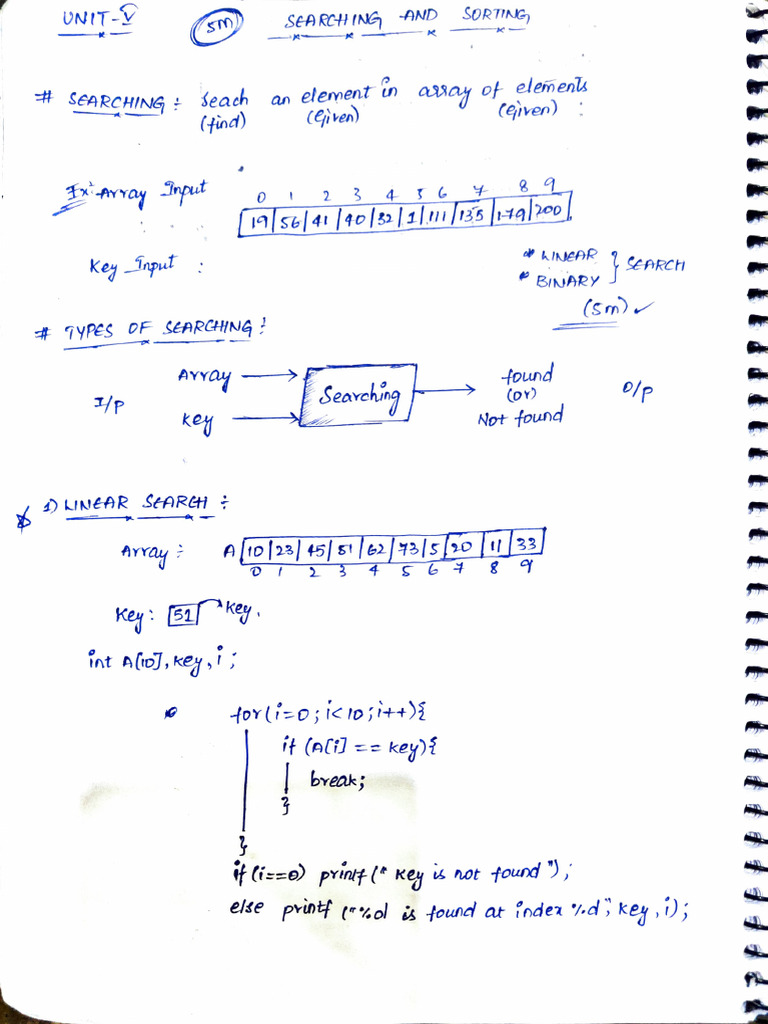 UNIT-V (5m) SEARCHING AND SORTING
# SEARCHING : Seach an element in array of elements
(find) (Given) (Given) :
Ex: Array Input 0 1 2 3 4 5 6 7 8 9
19 56 41 40 32 1 111 135 179 200
Key Input :
* LINEAR
* BINARY } SEARCH
(5m) ✓
# TYPES OF SEARCHING :
I/P Array → Searching → found (or) Not found O/P
Key →
1) LINEAR SEARCH :
Array : A 10 23 45 51 62 73 5 20 11 33
0 1 2 3 4 5 6 7 8 9
Key : 51 → key.
int A[10], key, i ;
for(i=0 ; i<10 ; i++){
if (A[i] == key){
break;
}
}
if (i==0) printf(" Key is not found ");
else printf ("%d is found at index %d", key, i);